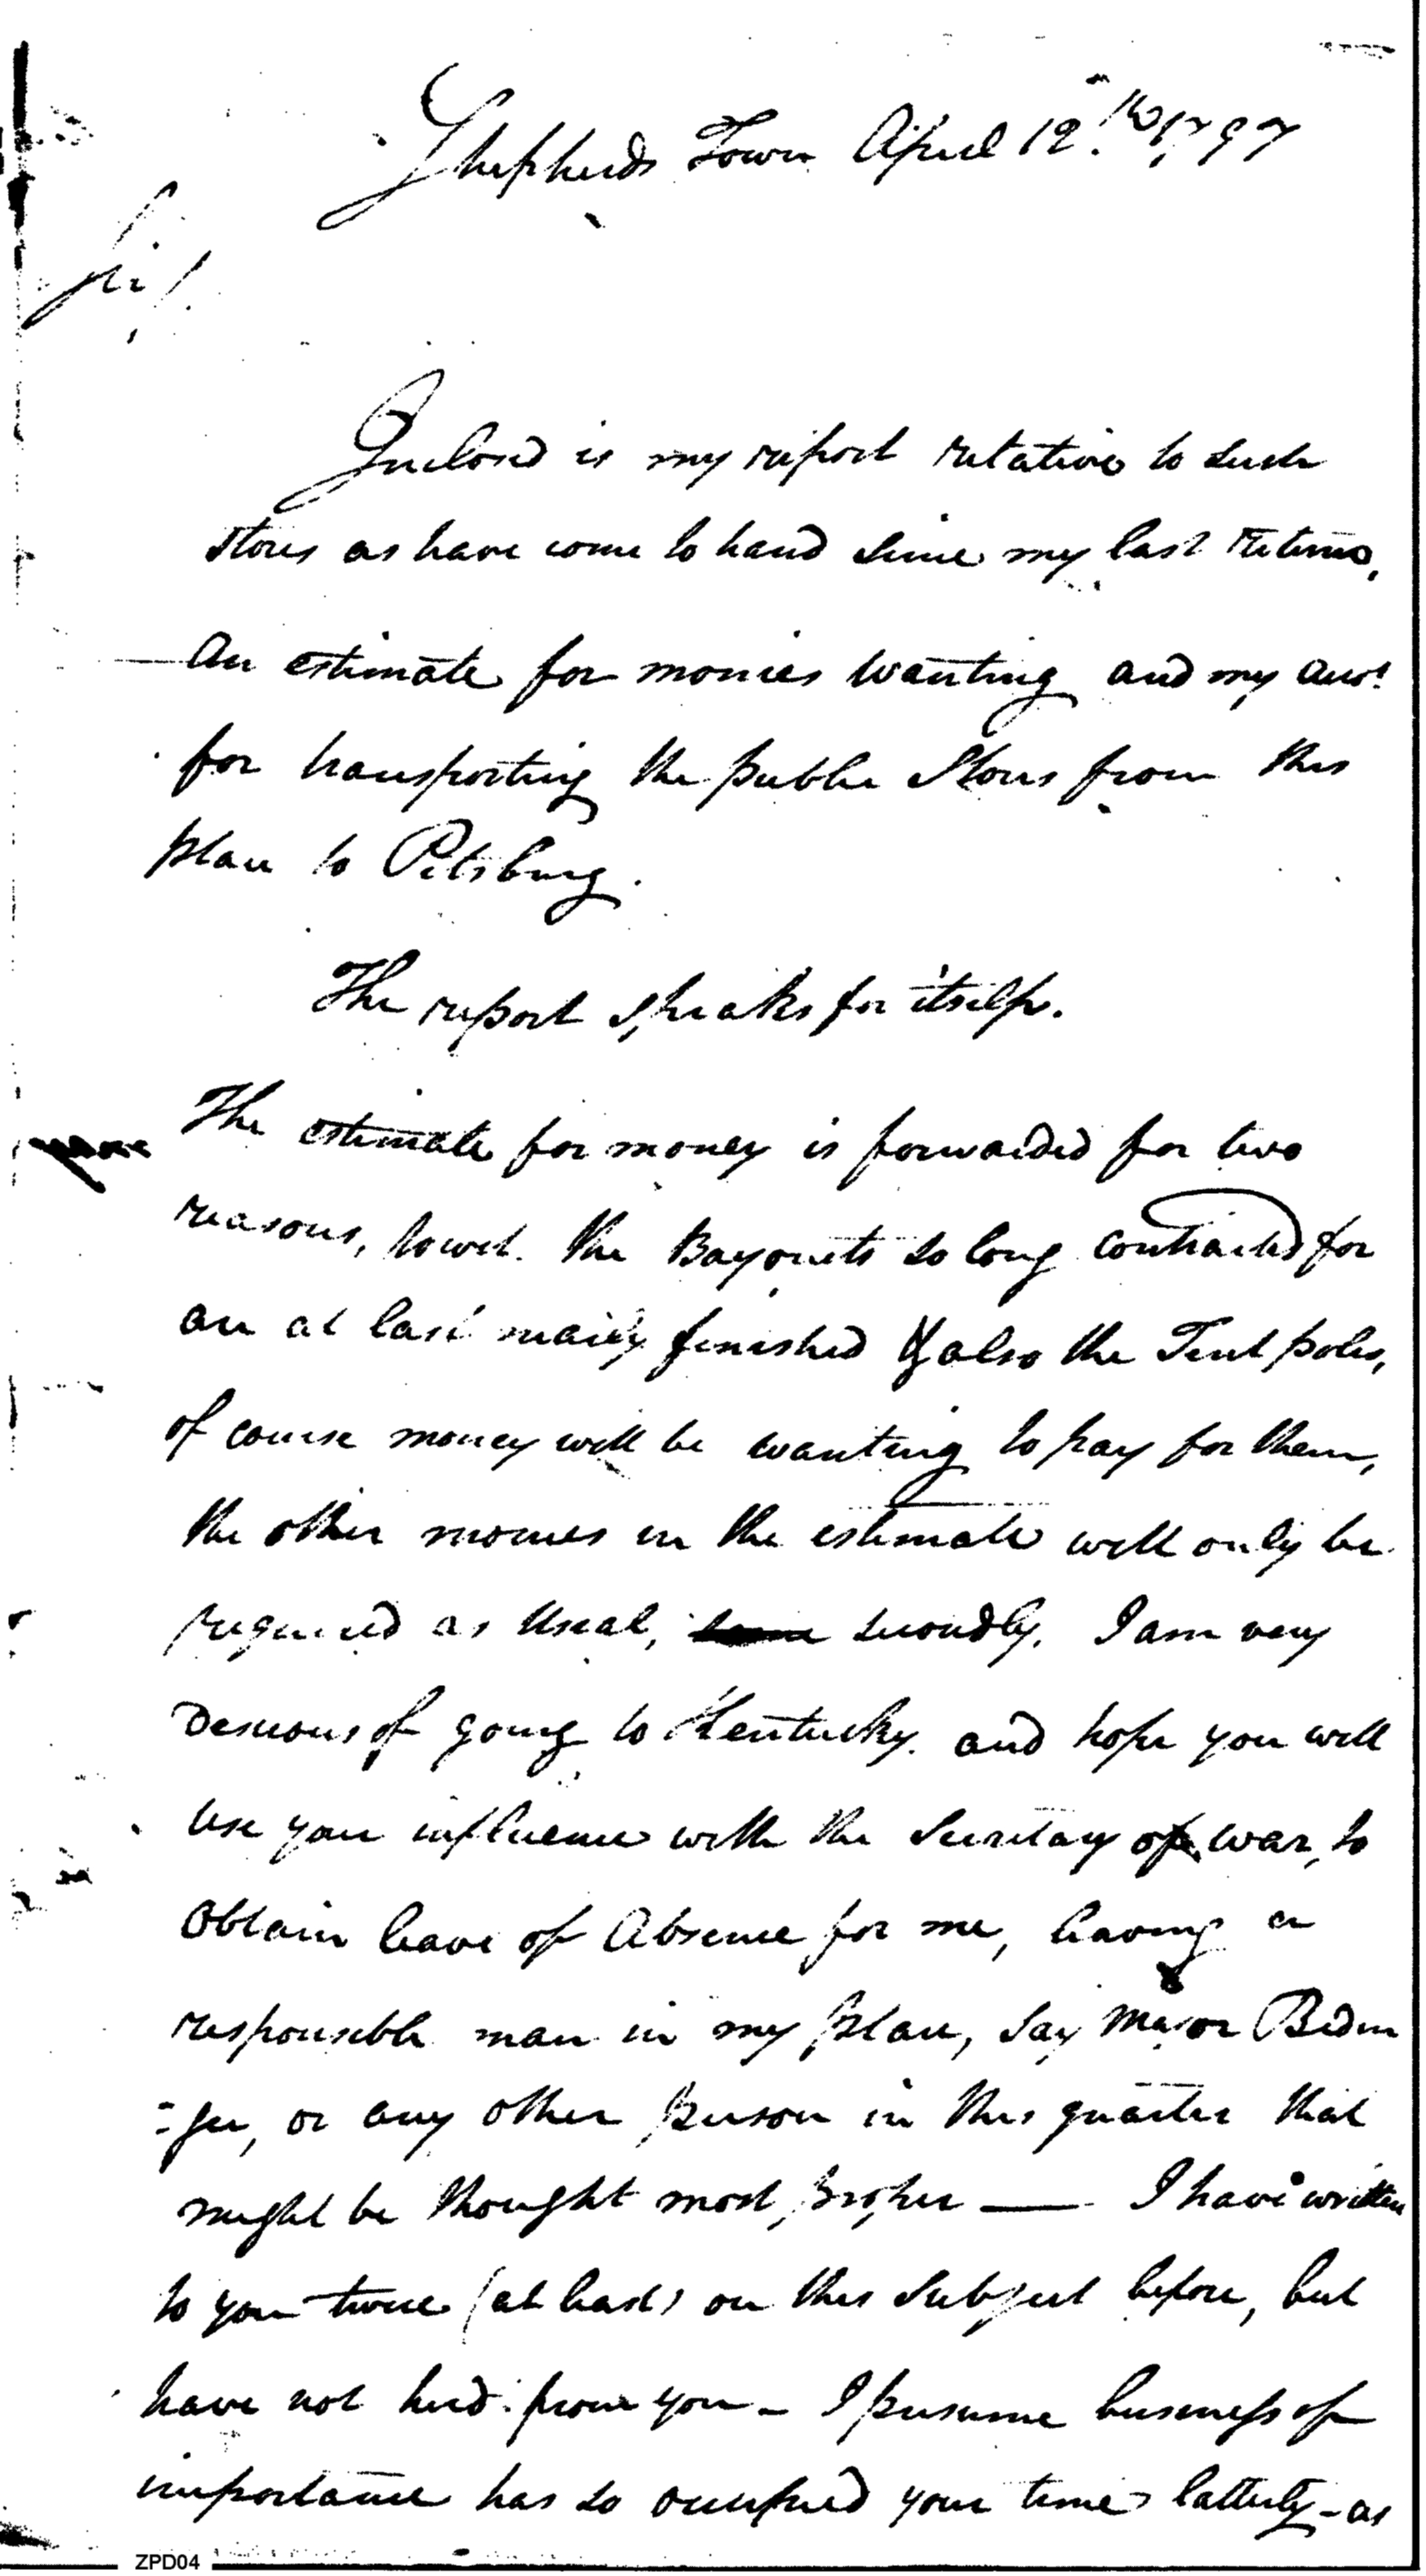 Shepherds Town April 12th 1797
Sir,
Inclosed is my report relative to such
stores as have come to hand since my last returns,
An estimate for monies wanting and my acct
for transporting the public Stores from this
place to Pitsburg.
The report speaks for itself.
The estimate for money is forwarded for two
reasons, towit. the Bayonets so long contracted for
are at last nearly finished & also the Tent poles,
of course money will be wanting to pay for them,
the other monies in the estimate will only be
required as usual, secondly. I am very
Desirous of going to Kentucky. and hope you will
use your influence with the Secretary of war, to
obtain leave of Absence for me, leaving a
responsible man in my place, say Major Bedin
=ger, or any other person in this quarter that
might be thought most proper — I have written
to you twice (at least) on this Subject before, but
have not herd from you - I presume business of
importance has so occupied your time latterly - as
ZPD04